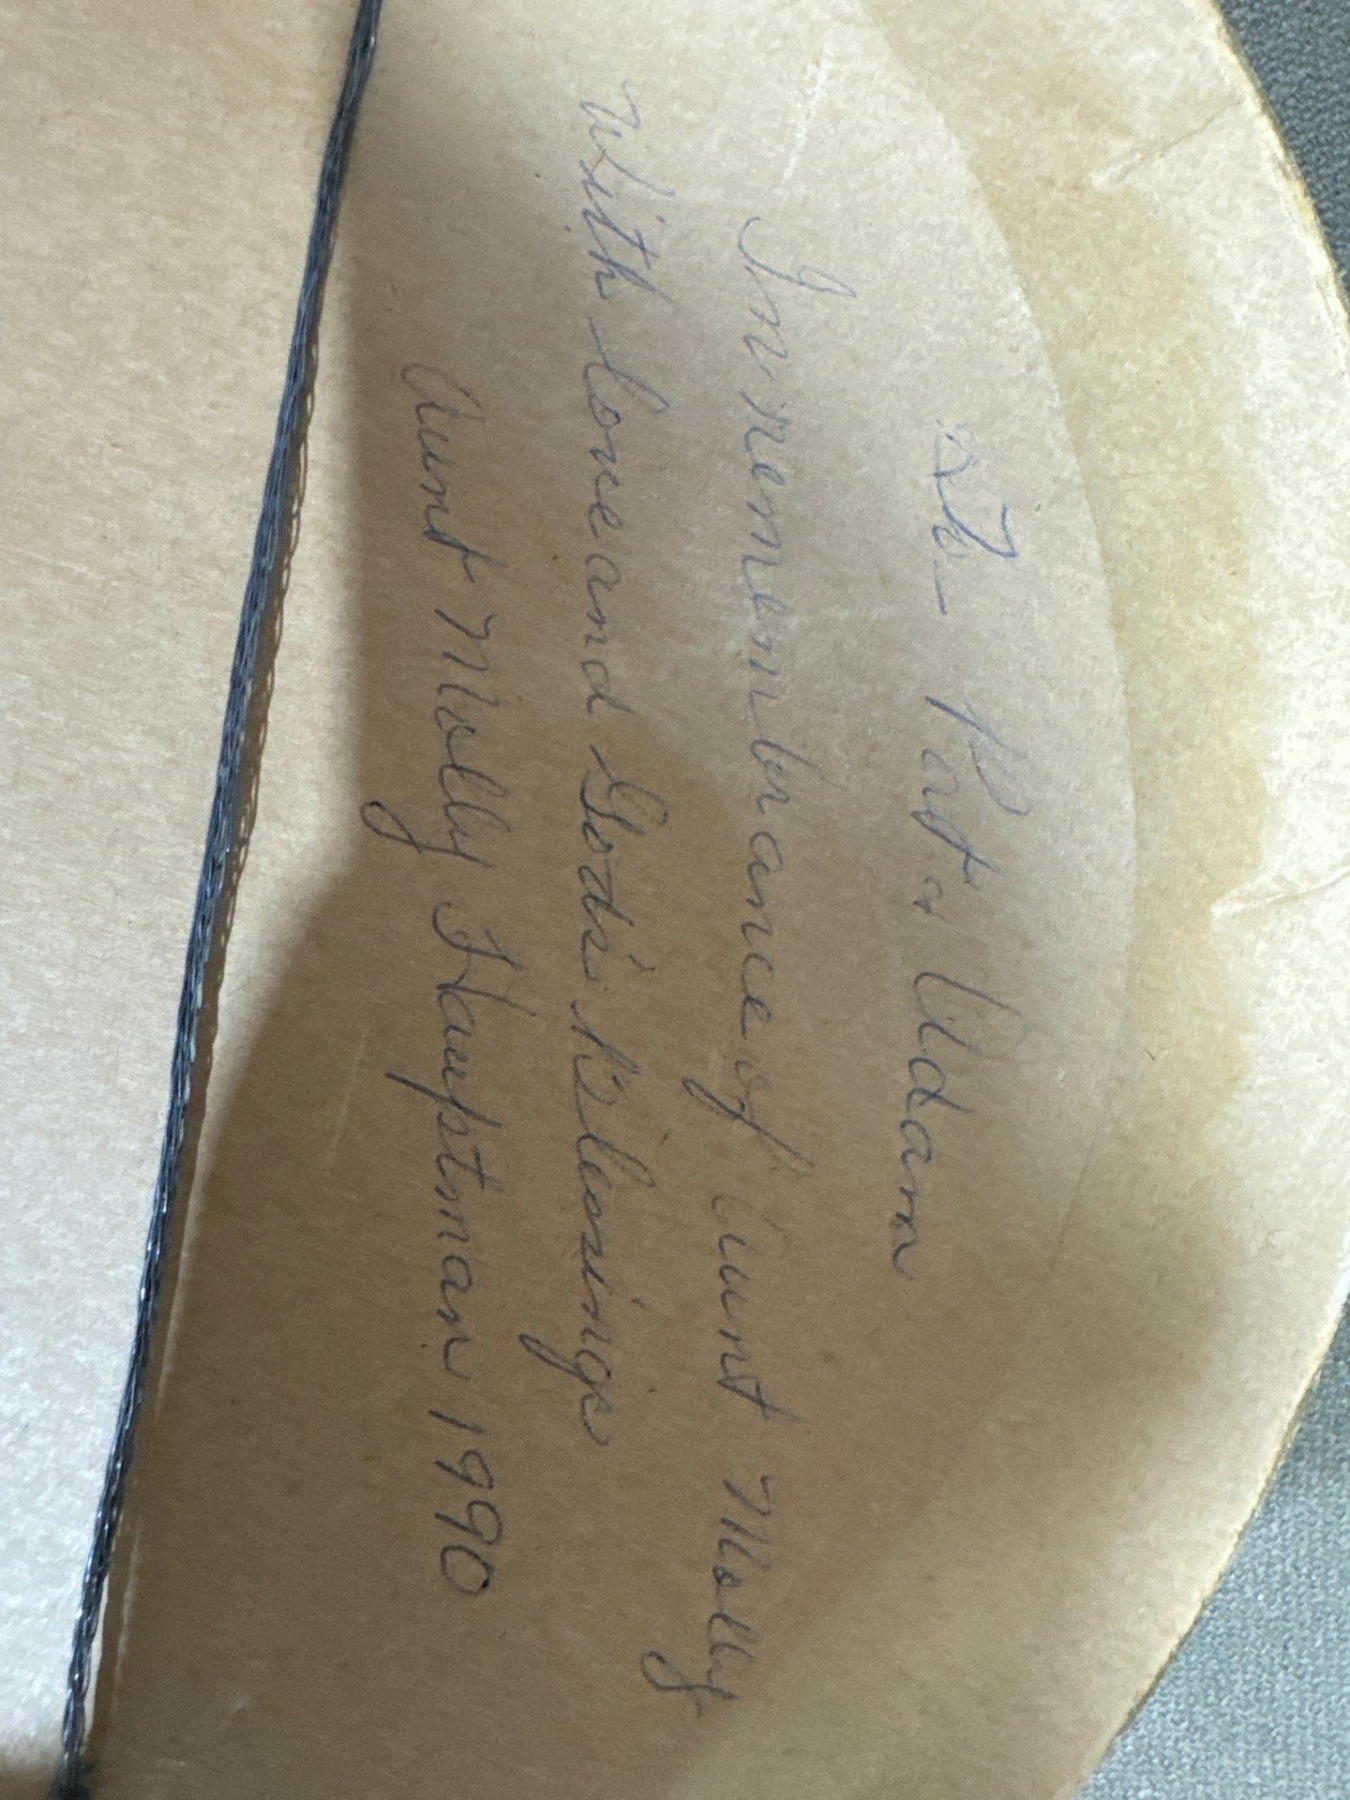 To Pat & Adam
In remembrance of Aunt Molly
With love and God's Blessings
Aunt Molly Hauptman 1990